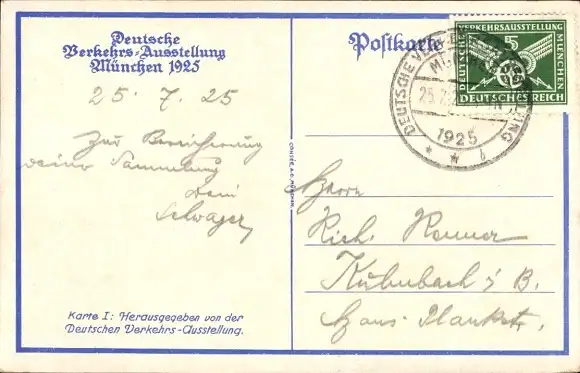 Deutsche
Verkehrs-Ausstellung
München 1925
25. 7. 25
Zur Bereicherung
deiner Sammlung
Dein
Schwager
Karte I: Herausgegeben von der
Deutschen Verkehrs-Ausstellung.
Postkarte
DEUTSCHE VERKEHRSAUSSTELLUNG
MÜNCHEN
5
DEUTSCHES REICH
DEUTSCHE
MÜNCHEN
25.7.
1925
Herrn
Rich.
Kühnbach i B.
Hans